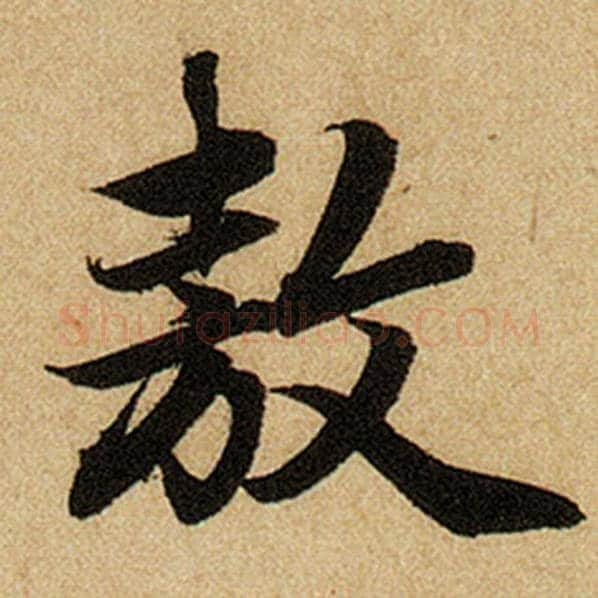 敖
Shufaziliao.COM